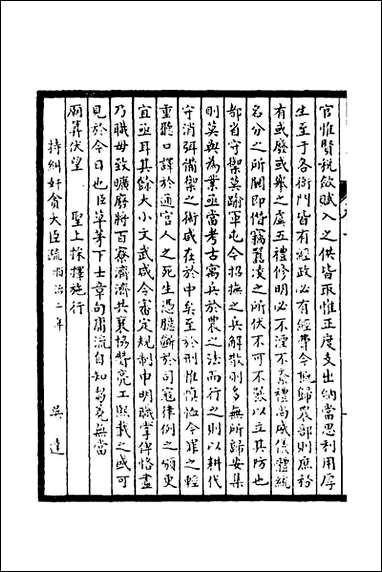 官惟賢稅斂賦入之供皆取惟正度支出納當思利用厚
生至于各衙門皆有經政必有經費今既歸農部則庶務
有或廢或舉之虞五禮修明必不湮不紊禮尚威儀體統
名分之所關即僭竊凌之所伏不可不嚴以立其防也
都省守禦莫踰軍屯今招撫之兵解散則多無所歸安集
則莫與為業亟當考古寓兵於農之法而行之則以耕代
守消弭備禦之術咸在於中矣至於刑惟慎恤今罪之輕
重聽口譯於通官人之死生憑臆斷於司寇律例之頒更
宜亟耳其餘大小文武咸令審定規制申明職掌俾恪盡
乃職毋致曠廢將百寮濟濟共襄協贊亮工熙載之盛可
見於今日也臣草茅下士章句庸流自知芻蕘無當
兩葬伏望 聖上採擇施行
特糾奸貪大臣疏 順治二年 吳達